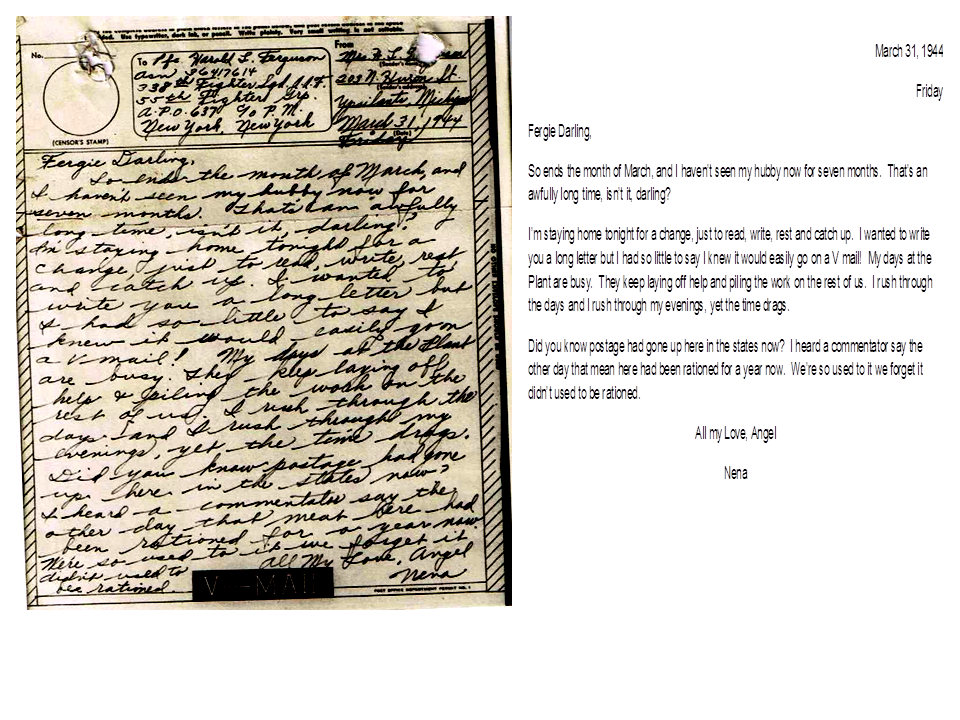 ded. Use typewriter, dark ink, or pencil. Write plainly. Very small writing is not suitable.
No.
(CENSOR'S STAMP)
To Pfc. Harold L. Ferguson
asn 36417614
338th Fighter Sqd. A.A.F.
55th Fighter Grp.
A.P.O. 637 c/o P.M.
New York, New York
From
Mrs. H. L.
(Sender's name)
209 N. Huron St.
(Sender's address)
Ypsilanti, Michigan
March 31, 1944
(Date)
Friday
Fergie Darling,
So ends the month of March, and
I haven't seen my hubby now for
seven months. That's an awfully
long time, isn't it, darling?
I'm staying home tonight for a
change, just to read, write, rest
and catch up. I wanted to
write you a long letter but
I had so little to say I
knew it would easily go on
a V mail! My days at the Plant
are busy. They keep laying off
help & piling the work on the
rest of us. I rush through the
days and I rush through my
evenings, yet the time drags.
Did you know postage had gone
up here in the states now?
I heard a commentator say the
other day that meat here had
been rationed for a year now.
We're so used to it we forget it
didn't used to
be rationed.
All My Love, Angel
Nena
V - MAIL
POST OFFICE DEPARTMENT PERMIT NO. 1
March 31, 1944
Friday
Fergie Darling,
So ends the month of March, and I haven't seen my hubby now for seven months. That's an
awfully long time, isn't it, darling?
I'm staying home tonight for a change, just to read, write, rest and catch up. I wanted to write
you a long letter but I had so little to say I knew it would easily go on a V mail! My days at the
Plant are busy. They keep laying off help and piling the work on the rest of us. I rush through
the days and I rush through my evenings, yet the time drags.
Did you know postage had gone up here in the states now? I heard a commentator say the
other day that mean here had been rationed for a year now. We're so used to it we forget it
didn't used to be rationed.
All my Love, Angel
Nena